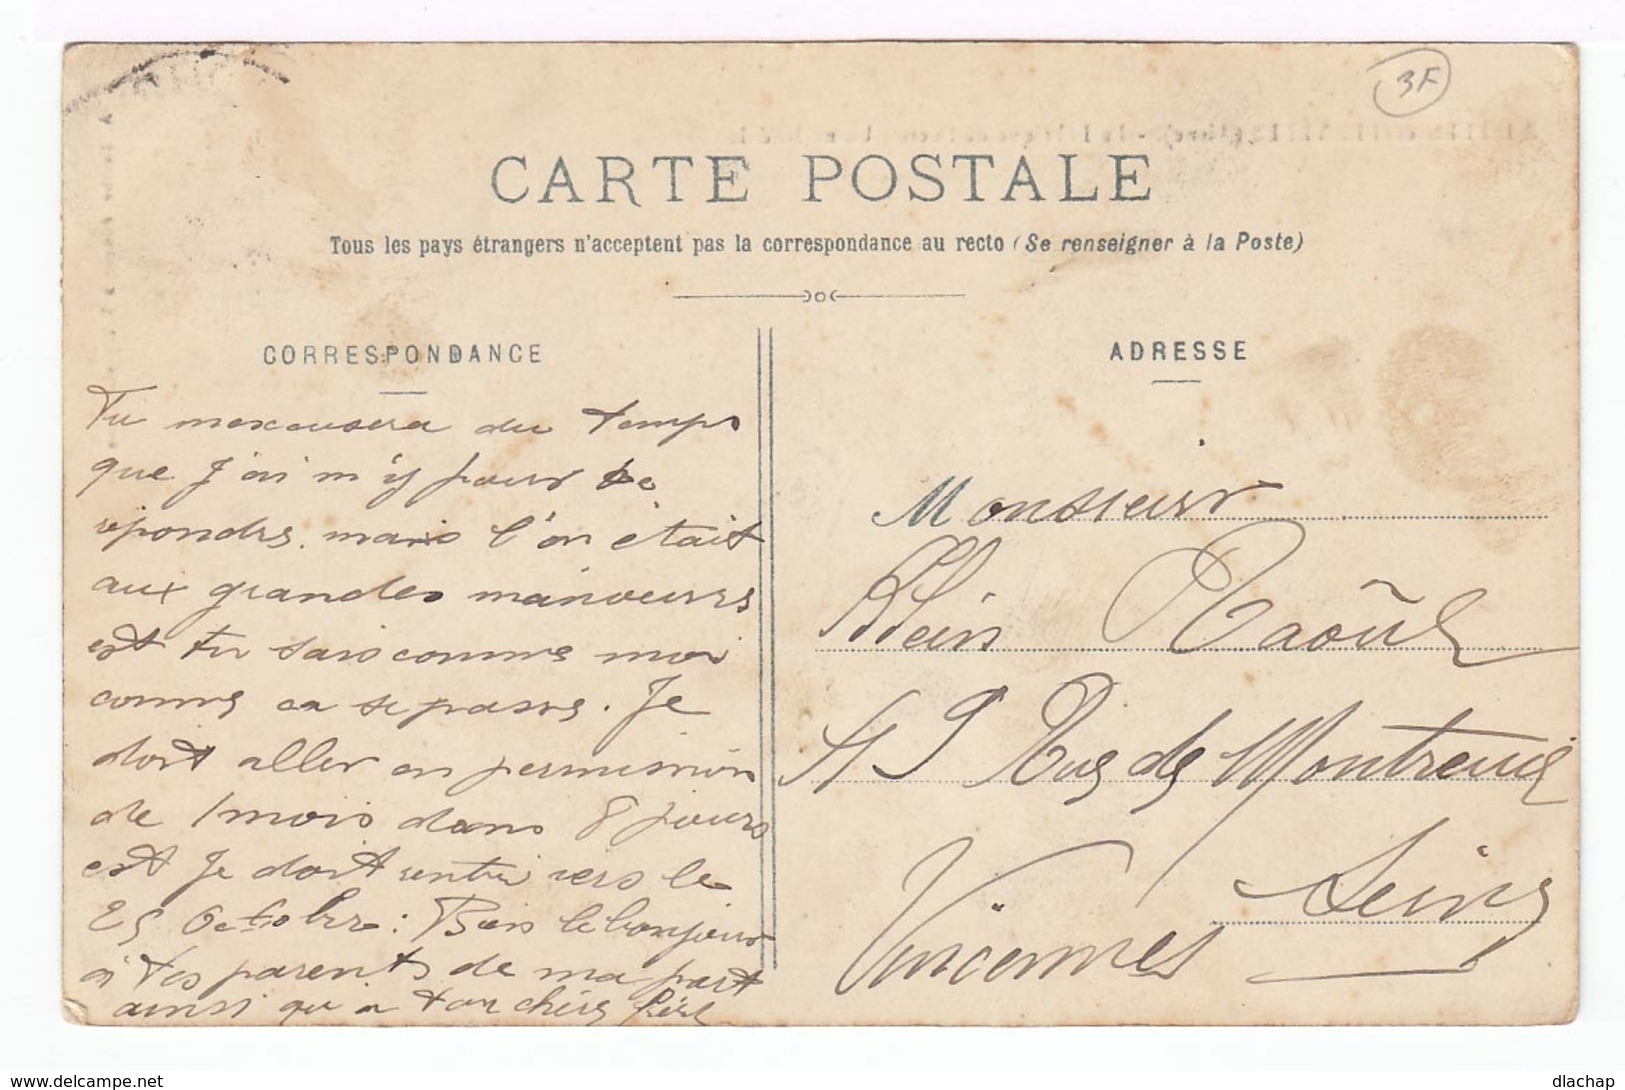 3F
CARTE POSTALE
Tous les pays étrangers n'acceptent pas la correspondance au recto (Se renseigner à la Poste)
CORRESPONDANCE
ADRESSE
Tu mexcusera du temps
que J'ai m'y pour te
répondre. mais l'on était
aux grandes manoeuvres
est tu sais comme moi
comme ca se passe. Je
doit aller en permission
de 1 mois dans 8 jours
est Je doit rentré vers le
25 Octobre: Bien le bonjour
à tes parents de ma part
ainsi qu a ton chère frère
Monsieur
Klein Raoûl
49 Rue de Montreuil
Vincennes Seine
dlachap